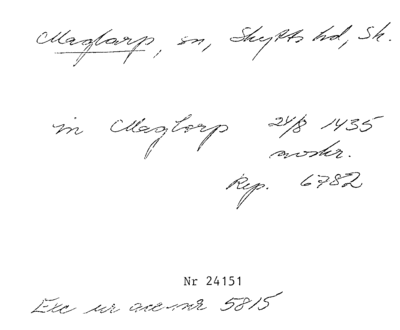 Maglarp, sn, Skytts hd, Sk.
in Maglorp 24/8 1435
avskr.
Rep. 6782
Nr 24151
Exc ur acc-nr 5815